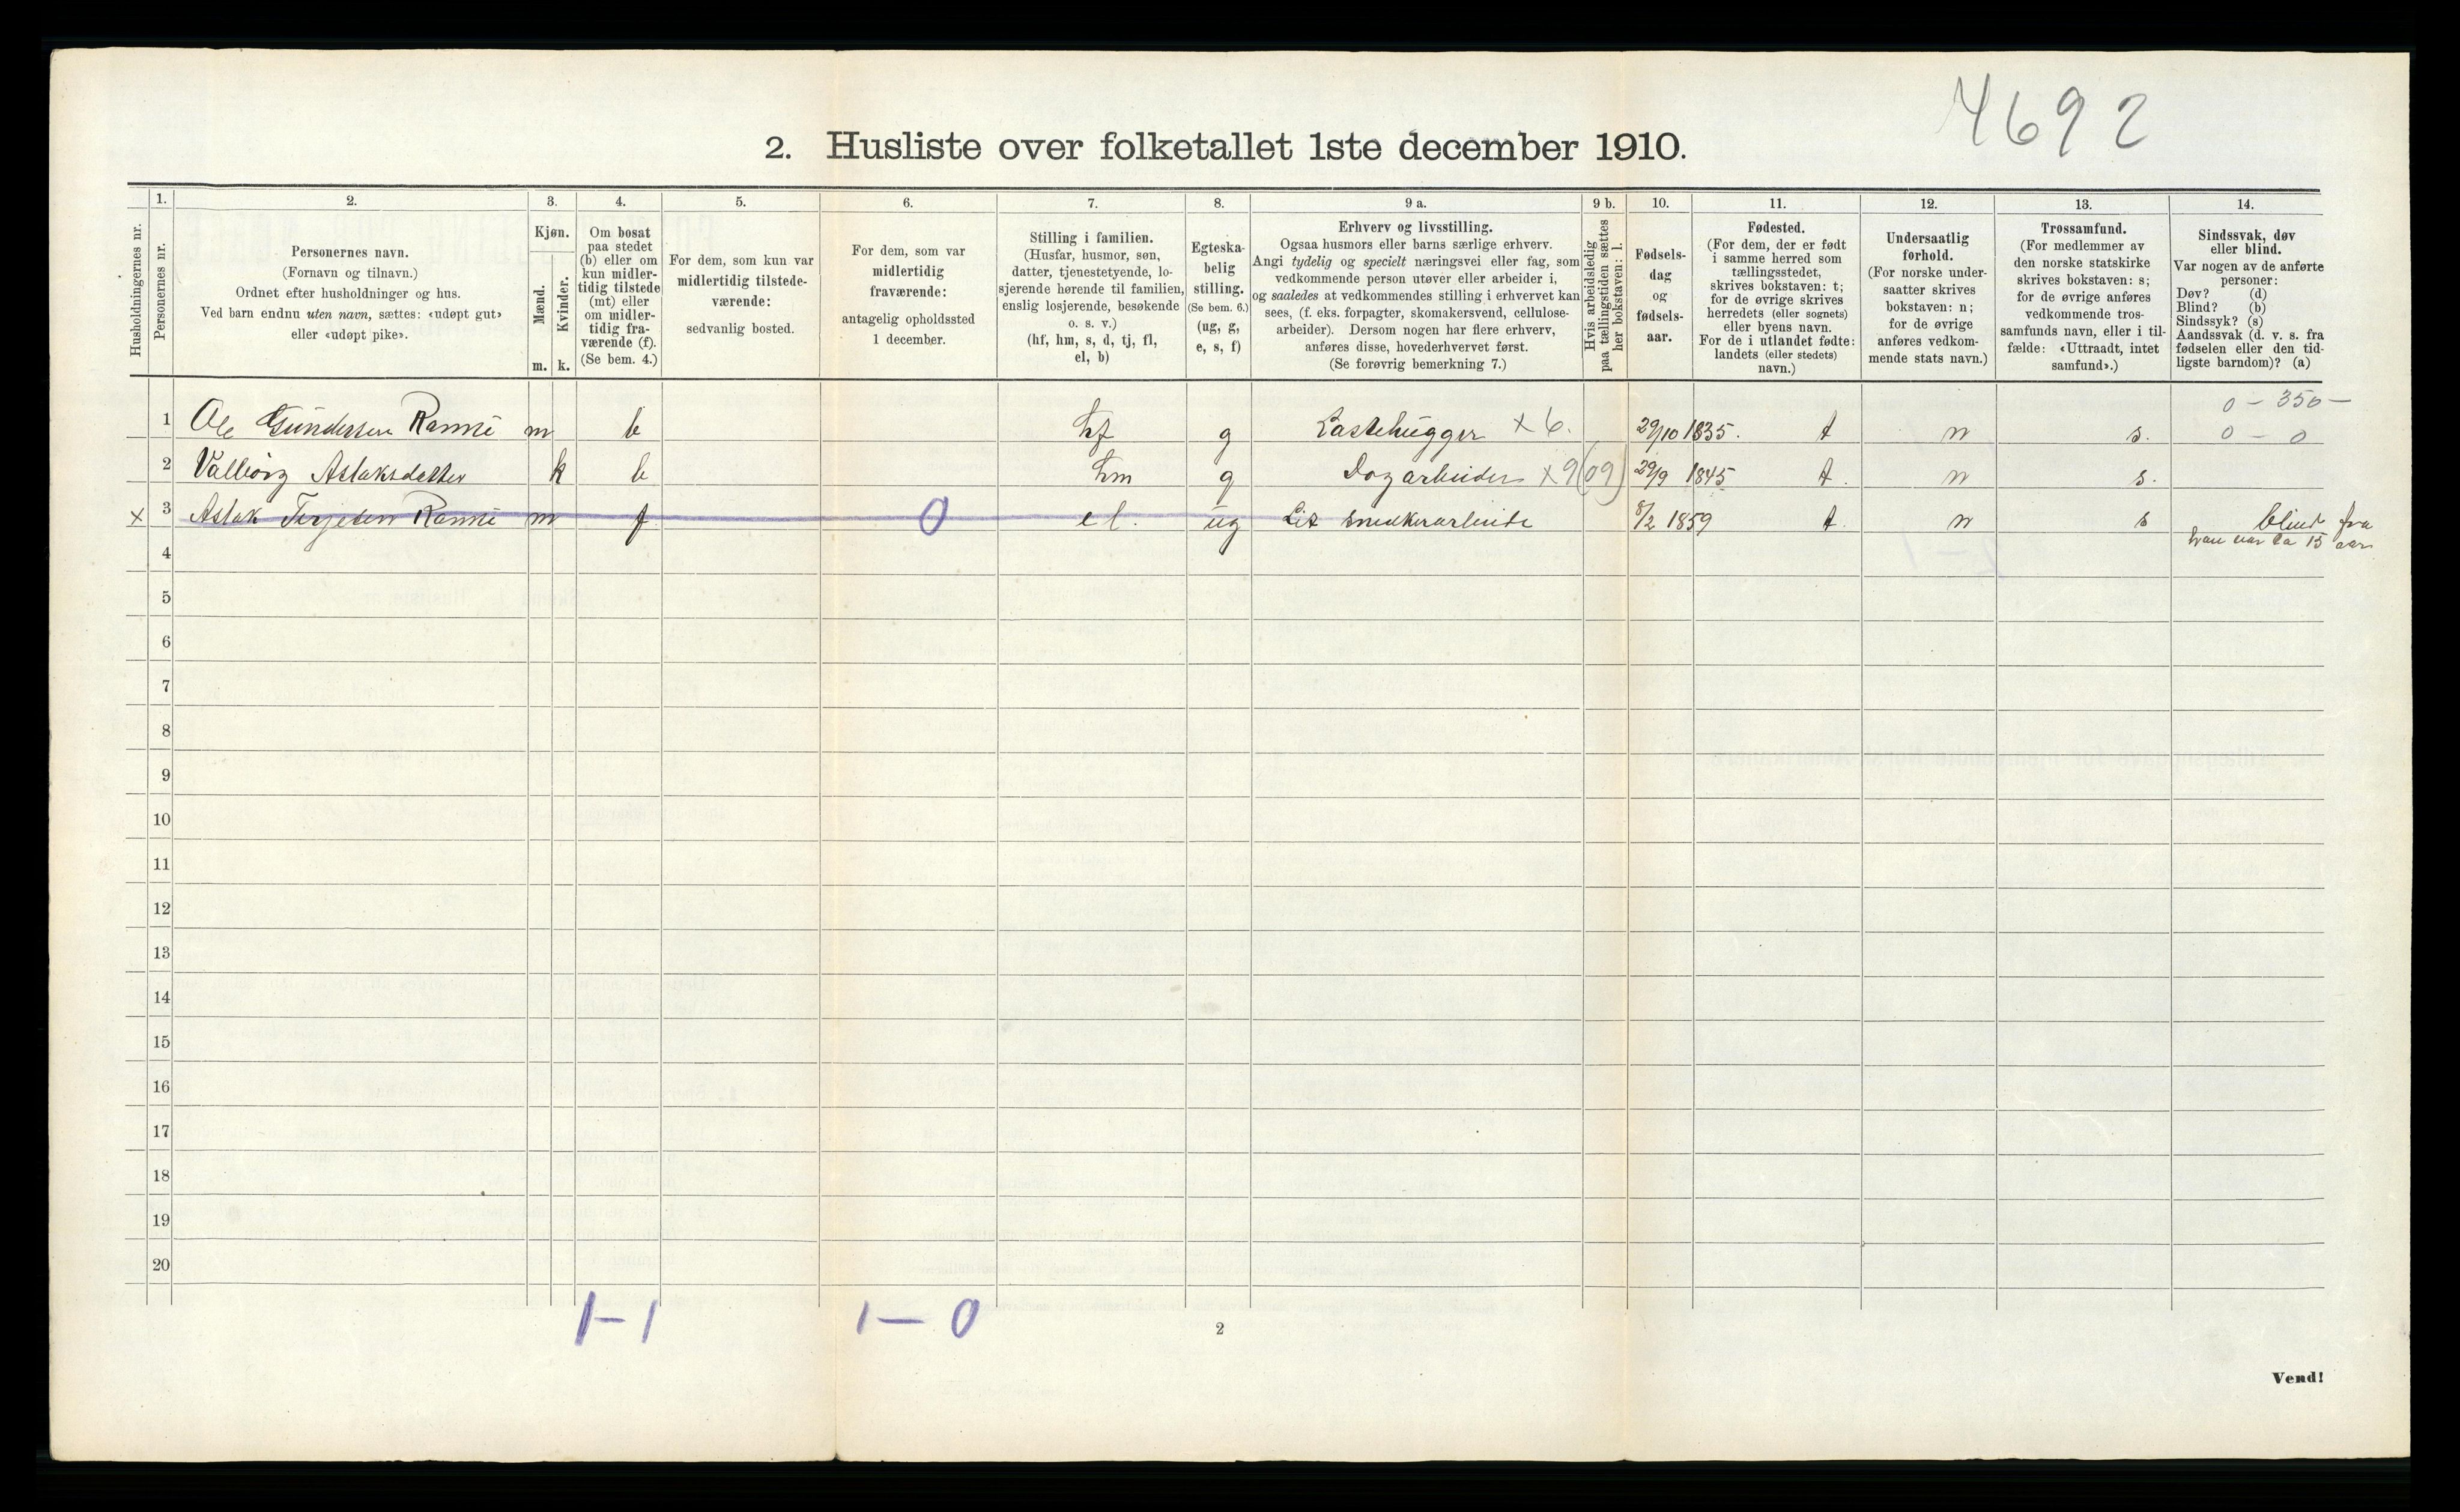 4692
2. Husliste over folketallet 1ste december 1910.
Husholdningernes nr.
1.
Personernes nr.
2.
Personernes navn.
(Fornavn og tilnavn.)
Ordnet efter husholdninger og hus.
Ved barn endnu uten navn, sættes: «udøpt gut»
eller «udøpt pike».
3.
Kjøn.
Mænd.
m.
Kvinder.
k.
4.
Om bosat
paa stedet
(b) eller om
kun midler-
tidig tilstede
(mt) eller
om midler-
tidig fra-
værende (f).
(Se bem. 4.)
5.
For dem, som kun var
midlertidig tilstede-
værende:
sedvanlig bosted.
6.
For dem, som var
midlertidig
fraværende:
antagelig opholdssted
1 december.
7.
Stilling i familien.
(Husfar, husmor, søn,
datter, tjenestetyende, lo-
sjerende hørende til familien,
enslig losjerende, besøkende
o. s. v.)
(hf, hm, s, d, tj, fl,
el, b)
8.
Egteska-
belig
stilling.
(Se bem. 6.)
(ug, g,
e, s, f)
9 a.
Erhverv og livsstilling.
Ogsaa husmors eller barns særlige erhverv.
Angi tydelig og specielt næringsvei eller fag, som
vedkommende person utøver eller arbeider i,
og saaledes at vedkommendes stilling i erhvervet kan
sees, (f. eks. forpagter, skomakersvend, cellulose-
arbeider). Dersom nogen har flere erhverv,
anføres disse, hovederhvervet først.
(Se forøvrig bemerkning 7.)
9 b.
Hvis arbeidsledig
paa tællingstiden sættes
her bokstaven: l.
10.
Fødsels-
dag
og
fødsels-
aar.
11.
Fødested.
(For dem, der er født
i samme herred som
tællingsstedet,
skrives bokstaven: t;
for de øvrige skrives
herredets (eller sognets)
eller byens navn.
For de i utlandet fødte:
landets (eller stedets)
navn.)
12.
Undersaatlig
forhold.
(For norske under-
saatter skrives
bokstaven: n;
for de øvrige
anføres vedkom-
mende stats navn.)
13.
Trossamfund.
(For medlemmer av
den norske statskirke
skrives bokstaven: s;
for de øvrige anføres
vedkommende tros-
samfunds navn, eller i til-
fælde: «Uttraadt, intet
samfund».)
14.
Sindssvak, døv
eller blind.
Var nogen av de anførte
personer:
Døv? (d)
Blind? (b)
Sindssyk? (s)
Aandssvak (d. v. s. fra
fødselen eller den tid-
ligste barndom)? (a)
0 - 350 -
1 Ole Gundersen Ramse m b hf g Lastehugger x 6. 29/10 1835. t n s. 0 - 0
2 Valborg Aslaksdatter k b hm g Dagarbeider x 9 (09) 29/9 1845 t. n s.
x 3 Aslak Terjesen Ramse m f 0 el. ug Lit snedkerarbeide 8/2 1859 t. n s blind fra
han var ca 15 aar
4
5
6
7
8
9
10
11
12
13
14
15
16
17
18
19
20
1-1 1-0
2
Vend!